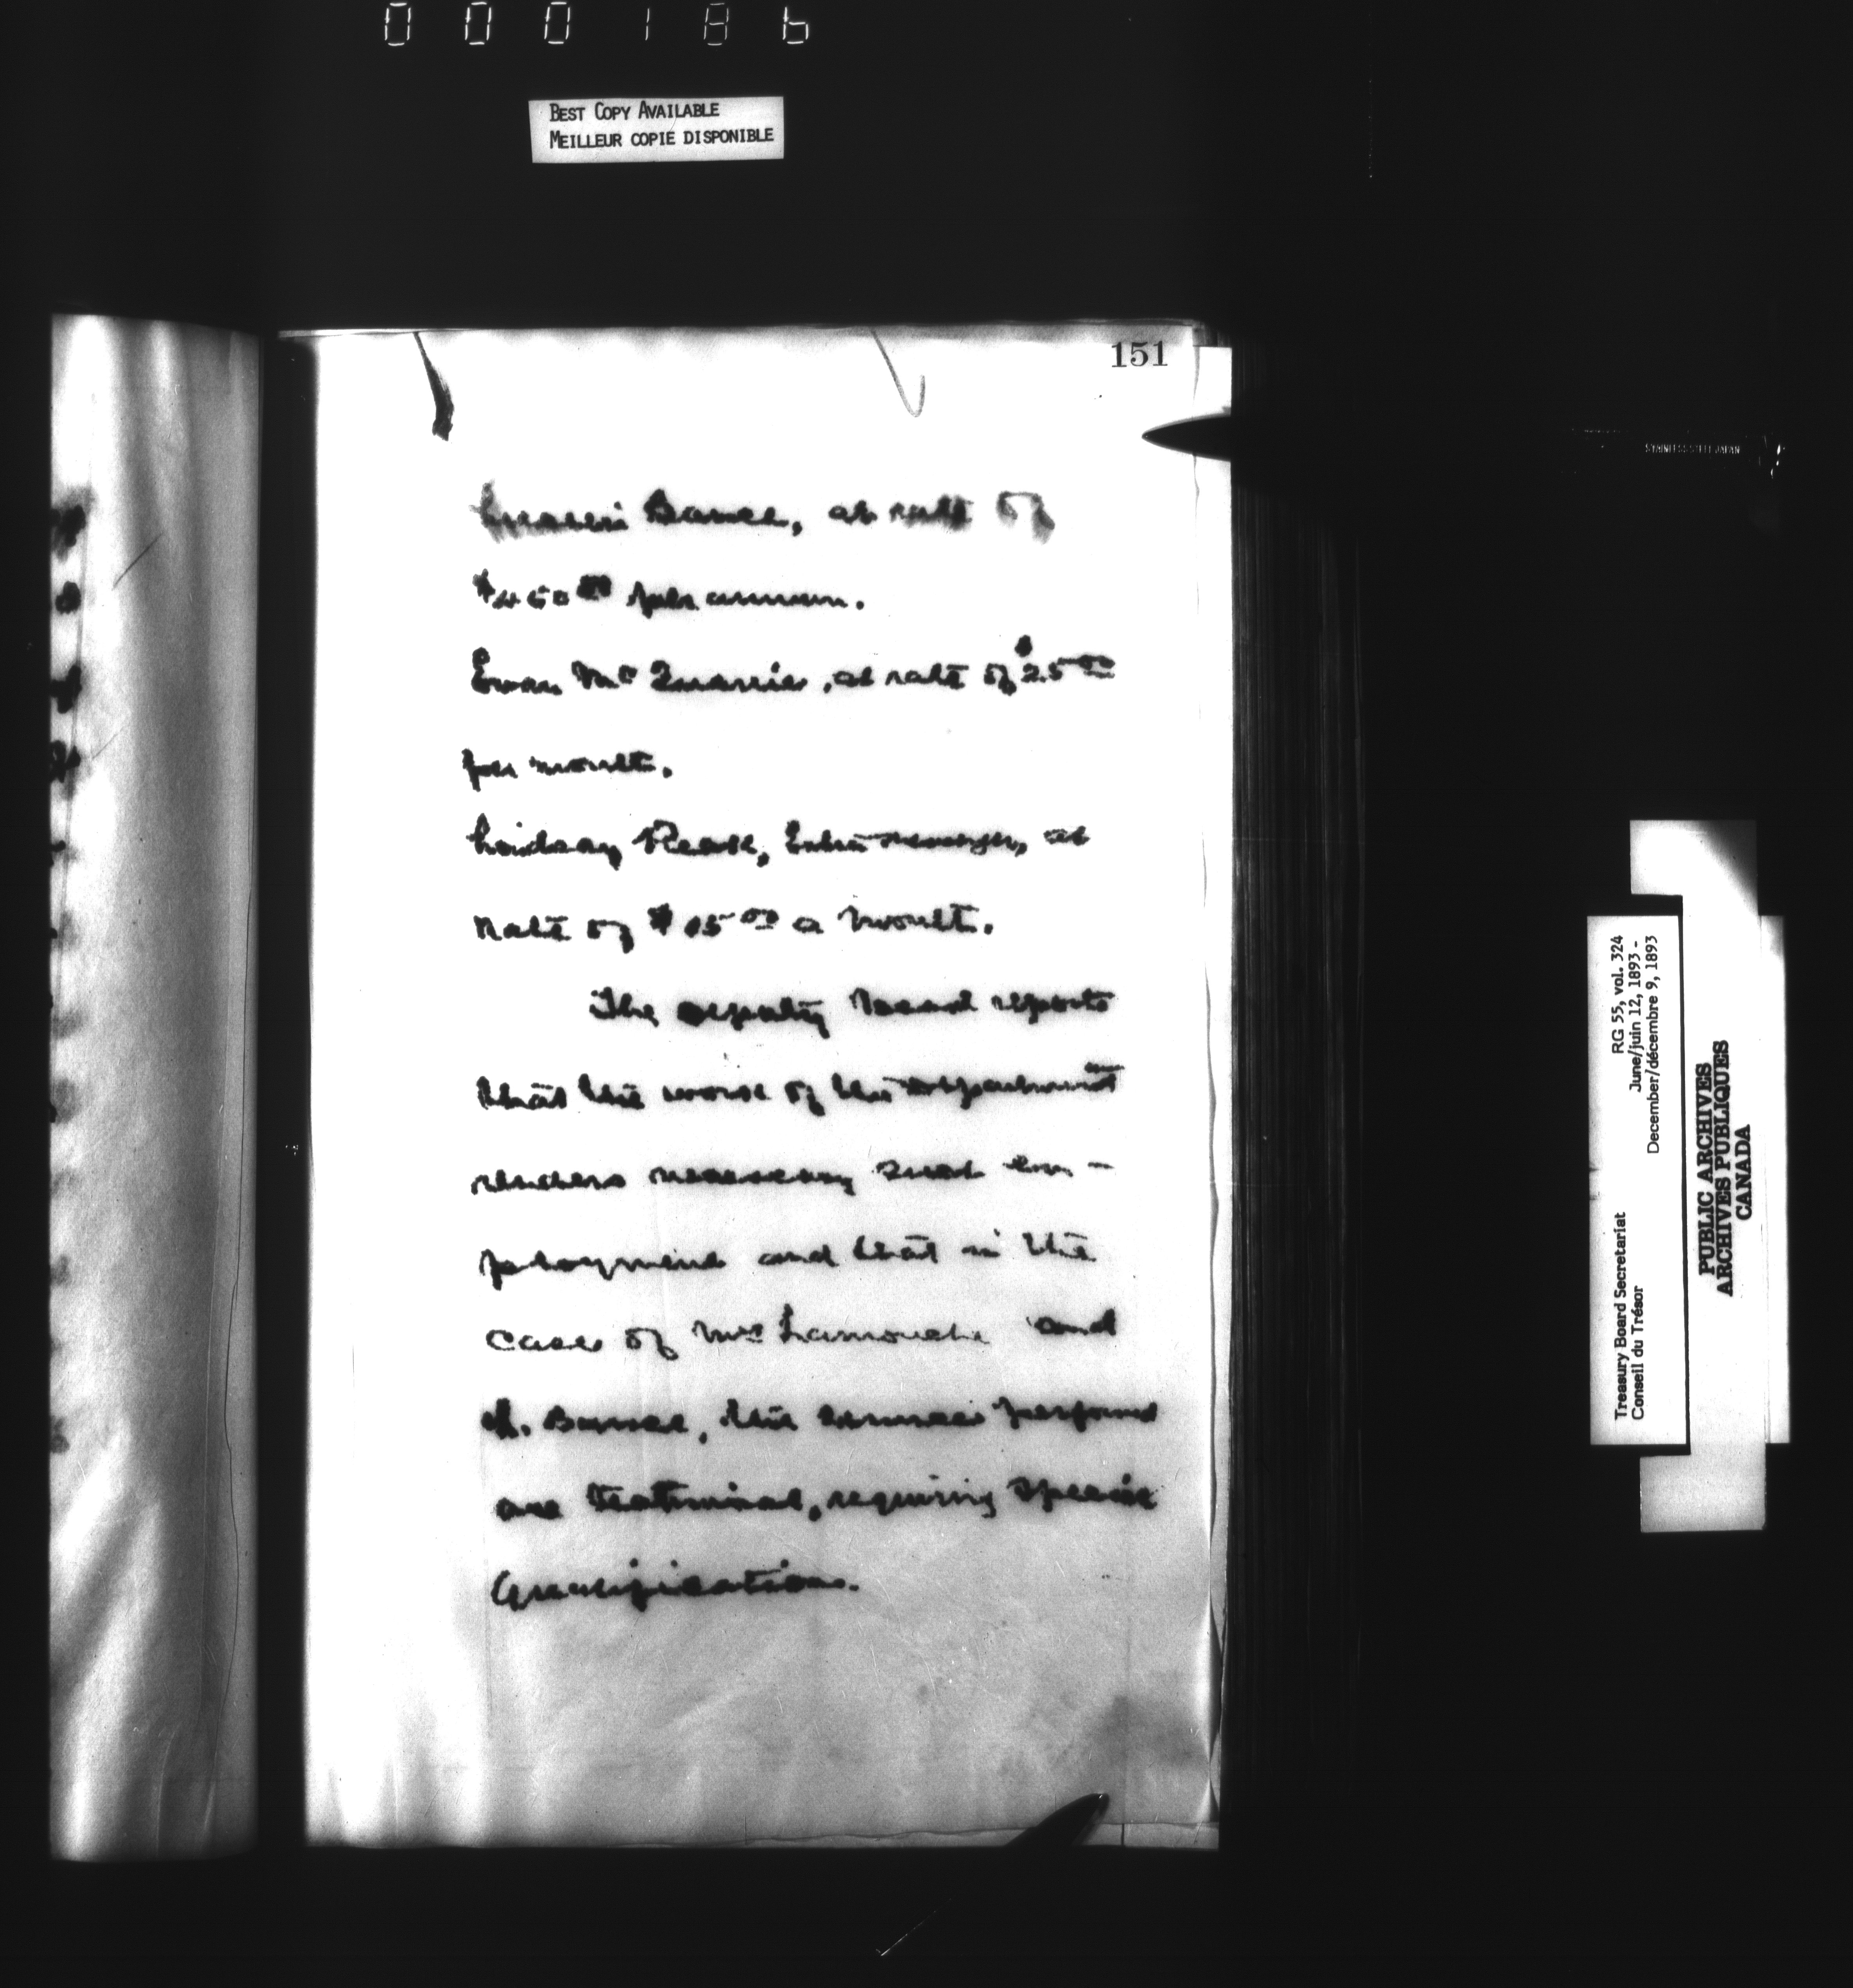 000186
BEST COPY AVAILABLE
MEILLEUR COPIE DISPONIBLE
151
at rate of
$450 00 per annum.
Ewan Mc Quarrie, at rate of $25 00
per month.
Lindsay Rease, Extra messenger, at
rate of $ 15 00 a month.
The deputy head reports
that the work of the department
renders necessary such em -
ployment and that in the
case of and
the services performed
are technical, requiring special
qualifications.
STAINLESS STEEL JAPAN
RG 55, vol. 324
June/juin 12, 1893 -
December/décembre 9, 1893
Treasury Board Secretariat
Conseil du Trésor
PUBLIC ARCHIVES
ARCHIVES PUBLIQUES
CANADA